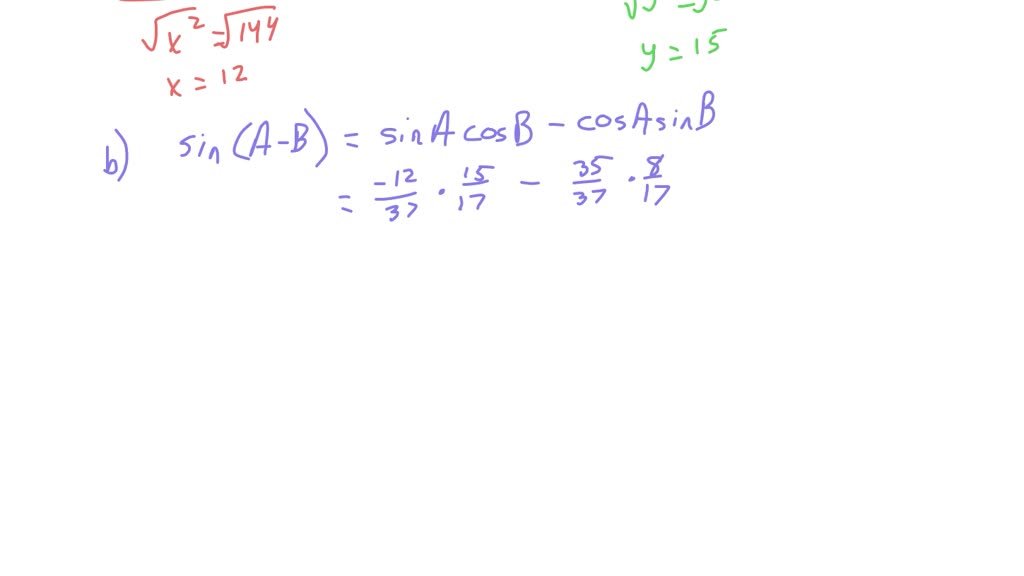 √x² = √144
x = 12
y = 15
b) sin(A-B) = sinA cosB - cosA sinB
= -12/37 · 15/17 - 35/37 · 8/17